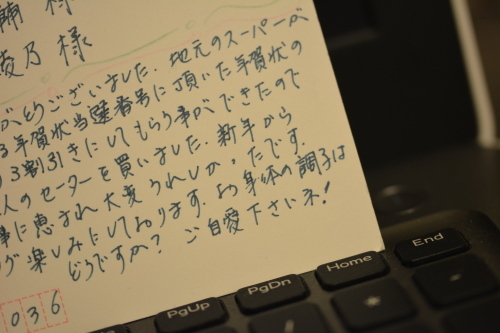 様
綾乃 様
がとうございました。地元のスーパーが
年賀状当選番号に頂いた年賀状の
3割引きにしてもらう事ができたので
人のセーターを買いました。新年から
事に恵まれ大変うれしかったです。
グ楽しみにしております。お身体の調子は
どうですか? ご自愛下さいネ!
036
PgUp
PgDn
Home
End
*